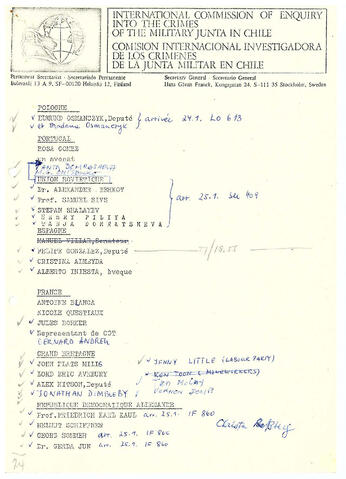 INTERNATIONAL COMMISSION OF ENQUIRY
INTO THE CRIMES
OF THE MILITARY JUNTA IN CHILE
COMISION INTERNACIONAL INVESTIGADORA
DE LOS CRIMENES
DE LA JUNTA MILITAR EN CHILE
Permanent Secretariat - Secretariado Permanente
Bulevardi 13 A 9, SF-00120 Helsinki 12, Finland
Secretary General - Secretario General
Hans Göran Franck, Kungsgatan 24, S-111 35 Stockholm, Sweden
POLOGNE
EDMUND OSMANCZYK, Deputé
et Madame Osmanczyk
arrivée 24.1. LO 613
PORTUGAL
ROSA GOMEZ
un avocat
UNION SOVIETIQUE
Dr. ALEXANDER BERKOV
Prof. SAMUEL SIVS
STEPAN SHALAYEV
HENRY PILIYA
arr. 25.1. SU 409
ESPAGNE
MANUEL VILLAR, Senateur
FELIPE GONZALEZ, Deputé
CRISTINA ALMEYDA
ALBERTO INIESTA, éveque
FRANCE
ANTOINE BLANCA
NICOLE QUESTIAUX
JULES BORKER
Representant de CGT
BERNARD ANDREU
GRAND BRETAGNE
JOHN PLATS MILLS
LORD ERIC AVEBURY
ALEX KITSON, Deputé
JONATHAN DIMBLEBY
JENNY LITTLE (LABOUR PARTY)
KEN TOON (MINEWORKERS)
REPUBLIQUE DEMOCRATIQUE ALLEMANDE
Prof. FRIEDRICH KARL KAUL arr. 25.1. IF 860
HELMUT SCHIFFNER
GEORG BÖHMEH arr. 25.1. IF 860
Dr. GERDA JUN arr. 25.1. IF 860
24